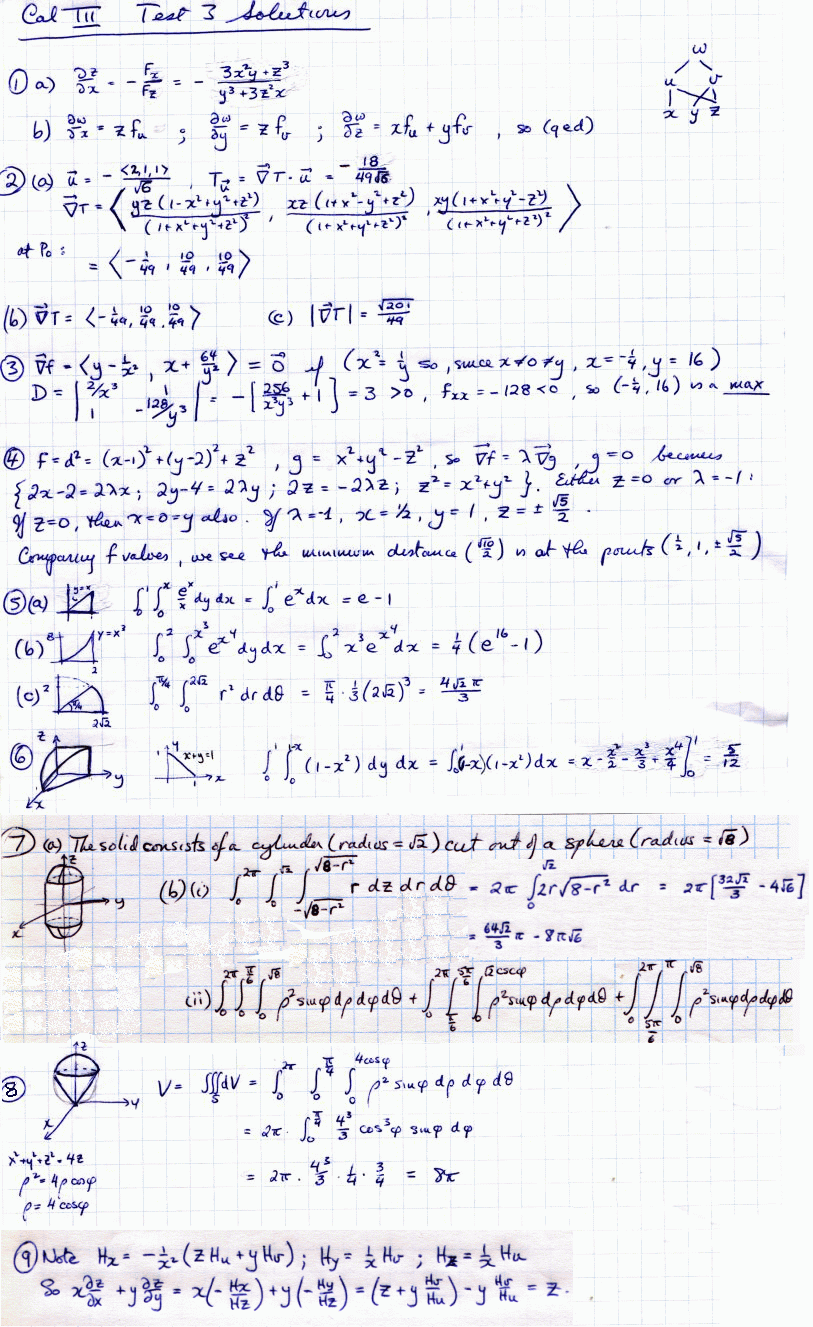 Cal III Test 3 Solutions
① a) ∂z/∂x = - Fx/Fz = - (3x²y + z³)/(y³ + 3z²x)
w
u v
x y z
b) ∂w/∂x = z fu ; ∂w/∂y = z fv ; ∂w/∂z = x fu + y fv , so (qed)
② (a) u⃗ = - <2,1,1>/√6 , T_u⃗ = ∇⃗T · u⃗ = - 18/(49√6)
∇⃗T = < yz(1-x²+y²+z²)/(1+x²+y²+z²)² , xz(1+x²-y²+z²)/(1+x²+y²+z²)² , xy(1+x²+y²-z²)/(1+x²+y²+z²)² >
at P₀ : = < -1/49 , 10/49 , 10/49 >
(b) ∇⃗T = < -1/49, 10/49, 10/49 > (c) |∇⃗T| = √201/49
③ ∇⃗f = < y - 1/x² , x + 64/y² > = 0⃗ if (x² = 1/y so, since x≠0≠y, x = -1/4, y = 16)
D = | 2/x³ 1 ; 1 -128/y³ | = -[256/(x³y³) + 1] = 3 > 0 , fxx = -128 < 0 , so (-1/4, 16) is a max
④ f = d² = (x-1)² + (y-2)² + z² , g = x² + y² - z² , so ∇⃗f = λ∇⃗g , g = 0 becomes
{2x-2 = 2λx ; 2y-4 = 2λy ; 2z = -2λz ; z² = x²+y² }. Either z=0 or λ = -1 :
If z=0, then x=0=y also. If λ=-1, x = 1/2, y = 1, z = ± √5/2 .
Comparing f values, we see the minimum distance (√10/2) is at the points (1/2, 1, ± √5/2)
⑤ (a) y=x ∫₀¹ ∫₀ˣ eˣ/x dy dx = ∫₀¹ eˣ dx = e - 1
(b) 8 y=x³ 2 ∫₀² ∫₀^(x³) e^(x⁴) dy dx = ∫₀² x³ e^(x⁴) dx = 1/4 (e¹⁶ - 1)
(c) 2 π/4 2√2 ∫₀^(π/4) ∫₀^(2√2) r² dr dθ = π/4 · 1/3 (2√2)³ = 4√2 π/3
⑥ z y x y 1 x+y=1 1 x ∫₀¹ ∫₀^(1-x) (1-x²) dy dx = ∫₀¹ (1-x)(1-x²) dx = x - x²/2 - x³/3 + x⁴/4 ]₀¹ = 5/12
⑦ (a) The solid consists of a cylinder (radius = √2) cut out of a sphere (radius = √8)
z y x (b) (i) ∫₀^(2π) ∫₀^(√2) ∫_(-√(8-r²))^(√(8-r²)) r dz dr dθ = 2π ∫₀^(√2) 2r√(8-r²) dr = 2π [32√2/3 - 4√6]
= 64√2/3 π - 8π√6
(ii) ∫₀^(2π) ∫₀^(π/6) ∫₀^(√8) ρ² sinφ dρ dφ dθ + ∫₀^(2π) ∫_(π/6)^(5π/6) ∫₀^(√2 cscφ) ρ² sinφ dρ dφ dθ + ∫₀^(2π) ∫_(5π/6)^π ∫₀^(√8) ρ² sinφ dρ dφ dθ
⑧ z y x V = ∭_S dV = ∫₀^(2π) ∫₀^(π/4) ∫₀^(4cosφ) ρ² sinφ dρ dφ dθ
= 2π · ∫₀^(π/4) 4³/3 cos³φ sinφ dφ
x²+y²+z² = 4z
ρ² = 4ρ cosφ
ρ = 4 cosφ
= 2π · 4³/3 · 1/4 · 3/4 = 8π
⑨ Note Hx = -1/x² (z Hu + y Hv) ; Hy = 1/x Hv ; Hz = 1/x Hu
So x ∂z/∂x + y ∂z/∂y = x(-Hx/Hz) + y(-Hy/Hz) = (z + y Hv/Hu) - y Hv/Hu = z.